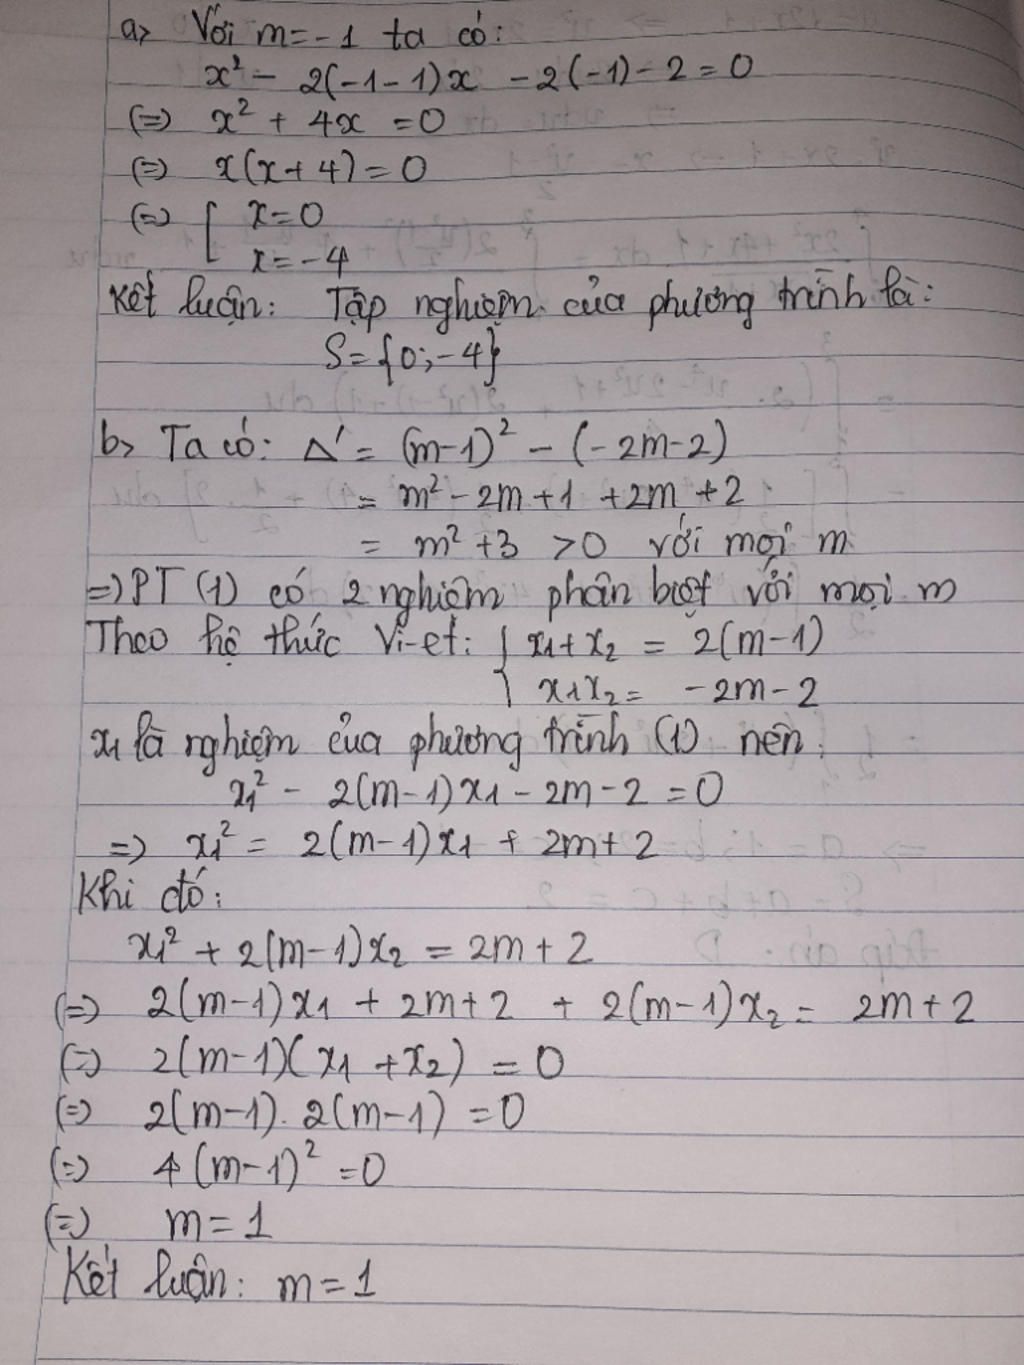 a> Với m=-1 ta có:
x² - 2(-1-1)x - 2(-1)-2=0
(=) x² + 4x = 0
(=) x(x+4)=0
(=) [ x=0
x=-4
Kết luận: Tập nghiệm của phương trình là:
S={0;-4}
b> Ta có: Δ' = (m-1)² - (-2m-2)
= m² - 2m+1 +2m +2
= m² +3 >0 với mọi m
=) PT (1) có 2 nghiệm phân biệt với mọi m
Theo hệ thức Vi-et: { x₁+x₂ = 2(m-1)
x₁x₂ = -2m-2
x₁ là nghiệm của phương trình (1) nên:
x₁² - 2(m-1)x₁ - 2m-2 =0
=) x₁² = 2(m-1)x₁ + 2m+2
Khi đó:
x₁² + 2(m-1)x₂ = 2m+2
(=) 2(m-1)x₁ + 2m+2 + 2(m-1)x₂ = 2m+2
(=) 2(m-1)(x₁+x₂) = 0
(=) 2(m-1). 2(m-1) =0
(=) 4(m-1)² =0
(=) m=1
Kết luận: m=1